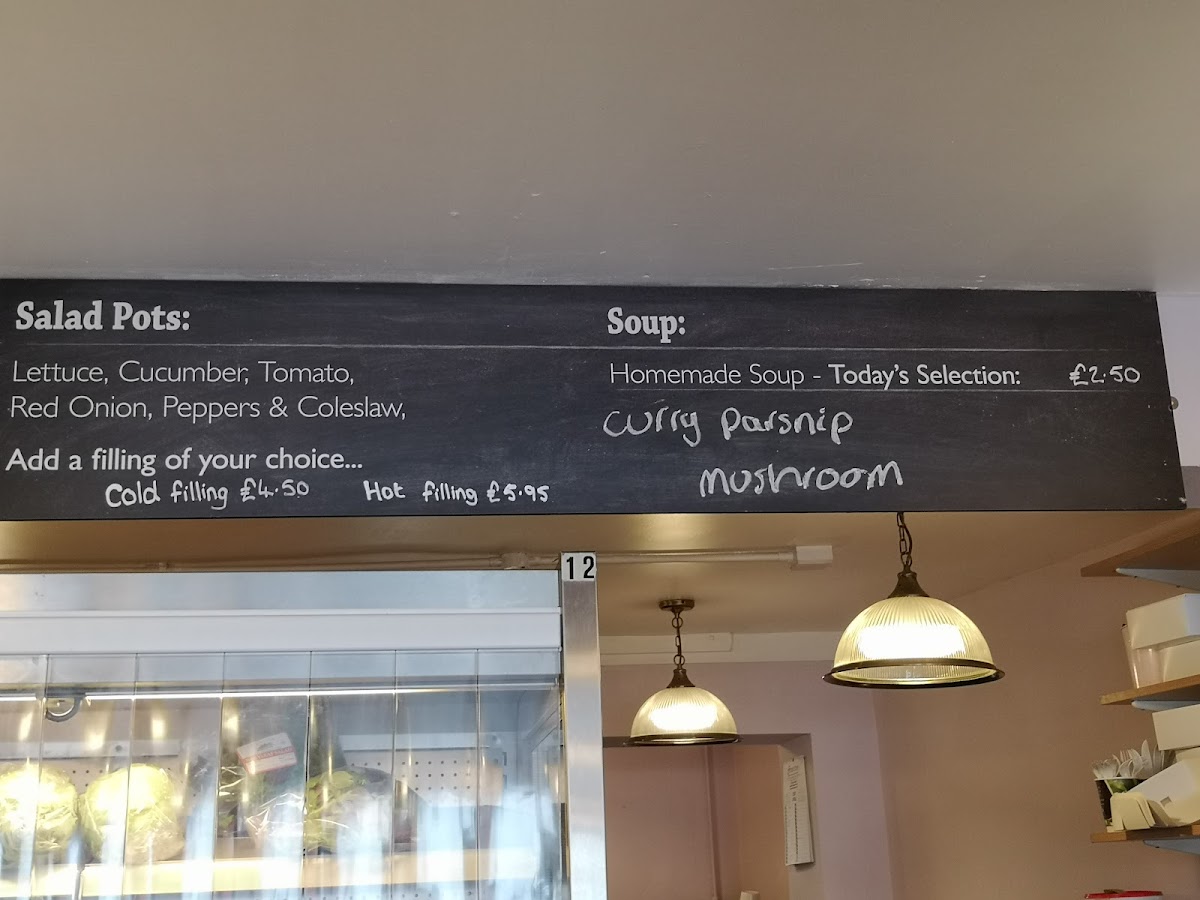 Salad Pots:
Lettuce, Cucumber, Tomato,
Red Onion, Peppers & Coleslaw,
Add a filling of your choice...
Cold filling £4.50 Hot filling £5.95
Soup:
Homemade Soup - Today's Selection: £2.50
curry parsnip
mushroom
12